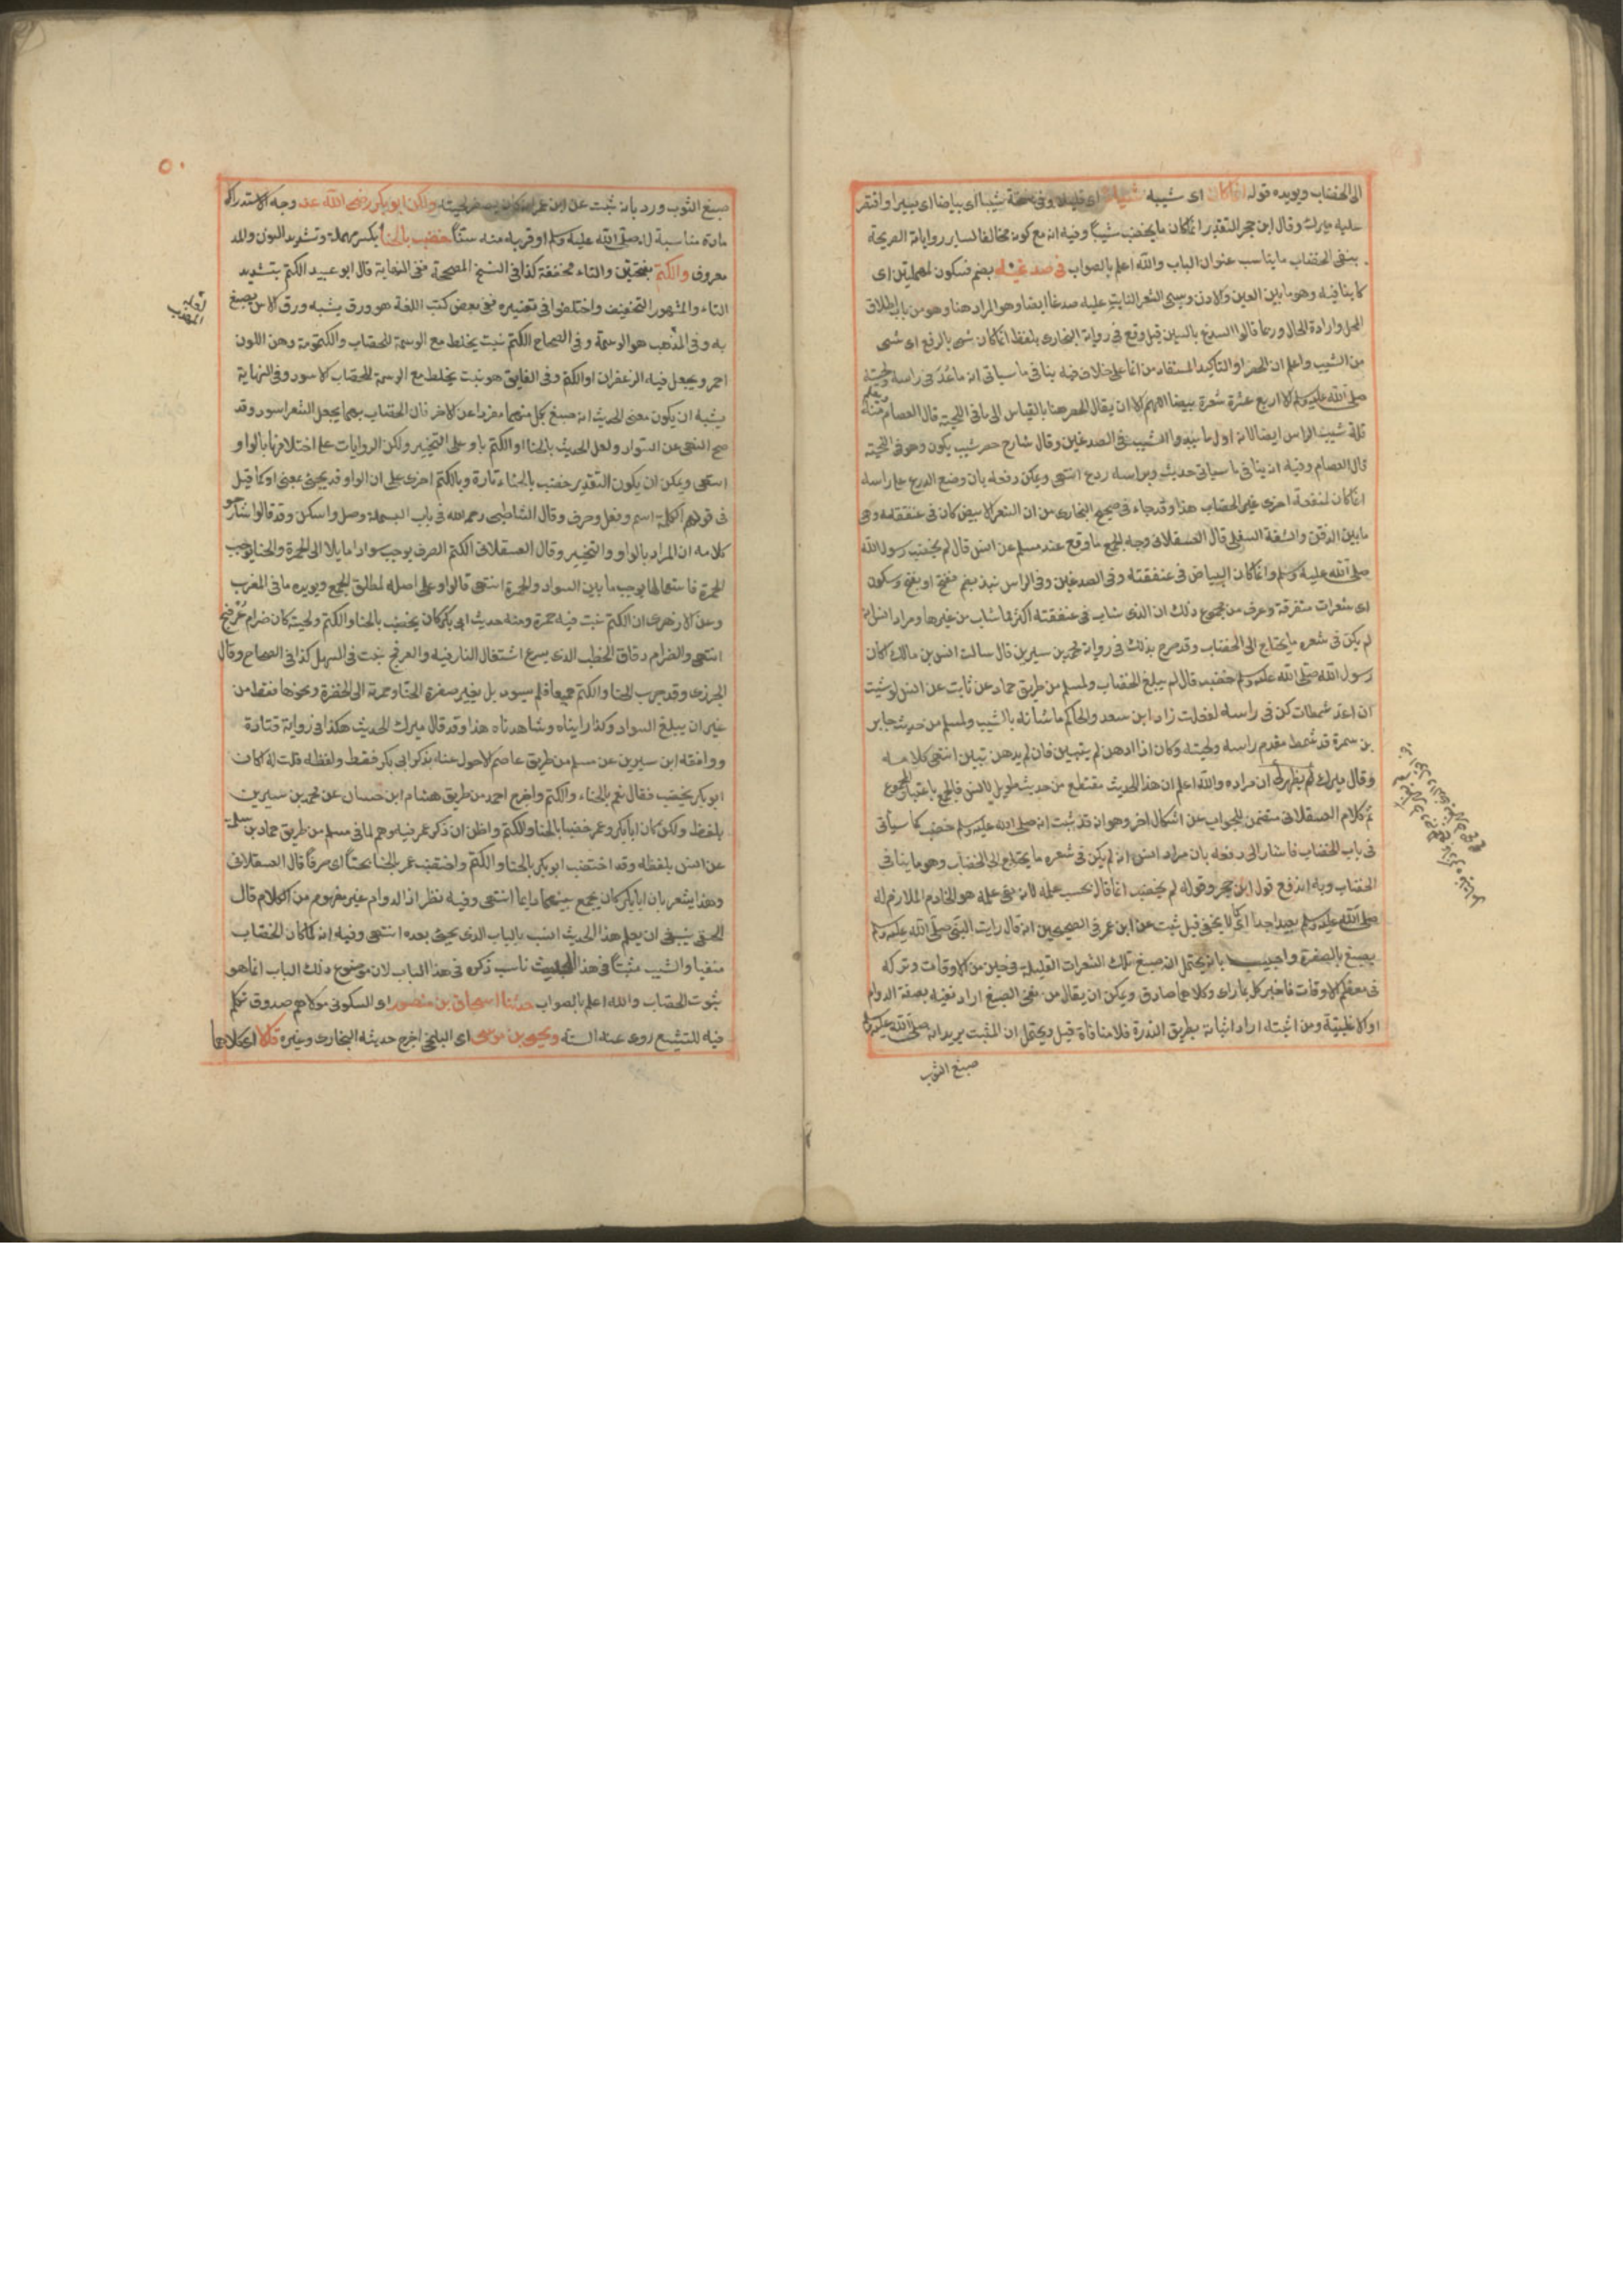 الى الخضاب ويويده قوله انما كان اى شيبه شيبا اى قليلا وفى نسخة شيبا اى بياضا اى يسيرا واقتصر
عليه ميرك وقال ابن حجر التقدير انما كان ما يخضب شيبا وفيه انه مع كونه مخالفا لساير رواياته الصريحة
بنفى الخضاب ما يناسب عنوان الباب والله اعلم بالصواب فى صدغيه بضم فسكون لمهملتين اى
كاينا فيه وهو ما بين العين والاذن ويسمى الشعر النابت عليه صدغا ايضا وهو المراد هنا وهو من باب اطلاق
المحل وارادة الحال وربما قالوا السدغ بالسين قيل وقع فى رواية البخارى بلفظ انما كان شى بالرفع اى شى
من الشيب واعلم ان الحصر او التاكيد المستفاد من انما على خلاف فيه ينافى ما سياتى انه ما عد فى راسه ولحيته
صلى الله عليه وسلم الا اربع عشرة شعرة بيضا اللهم الا ان يقال الحصر هنا بالقياس الى باقى اللحية قال العصام ويعلم منه
قلة شيب الراس ايضا لانه اول ما يبدوا الشيب فى الصدغين وقال شارح حصر شيب يكون وهو فى اللحية
قال العصام وفيه انه ينافى ما سياتى حديث وبراسه ردع انتهى ويمكن دفعه بان وضع الردع على راسه
انما كان لمنفعة اخرى غير الخضاب هذا وقد جاء فى صحيح البخارى من ان الشعر الابيض كان فى عنفقته وهى
ما بين الذقن والشفة السفلى قال العسقلانى وجه الجمع ما وقع عند مسلم عن انس قال لم يخضب رسول الله
صلى الله عليه وسلم وانما كان البياض فى عنفقته وفى الصدغين وفى الراس نبذ بضم ففتح او بفتح وسكون
اى شعرات متفرقة وعرف من مجموع ذلك ان الذى شاب فى عنفقته اكثر مما شاب من غيرها ومراد انس انه
لم يكن فى شعره ما يحتاج الى الخضاب وقد صرح بذلك فى رواية محمد بن سيرين قال سالت انس بن مالك اكان
رسول الله صلى الله عليه وسلم خضب قال لم يبلغ الخضاب ولمسلم من طريق حماد عن ثابت عن انس لو شيت
ان اعد شمطات كن فى راسه لفعلت زاد ابن سعد والحاكم ما شانه بالشيب ولمسلم من حديث جابر
بن سمرة قد شمط مقدم راسه ولحيته وكان اذا ادهن لم يتبين فان لم يدهن تبين انتهى كلامه
وقال ميرك لم يظهر لى ان مراده والله اعلم ان هذا الحديث مقتطع من حديث طويل لانس فالجمع باعتبار المجموع
ثم كلام العسقلانى متضمن للجواب عن اشكال اخر وهو انه قد ثبت انه صلى الله عليه وسلم خضب كما سياتى
فى باب الخضاب فاشار الى دفعه بان مراد انس انه لم يكن فى شعره ما يحتاج الى الخضاب وهو ما ينافى
الخضاب وبه اندفع قول ابن حجر وقوله لم يخضب انما قال بحسب علمه لان نفى علمه هو الخادم الملازم له
صلى الله عليه وسلم بعيد جدا كما لا يخفى قيل ثبت عن ابن عمر فى الصحيحين انه قال رايت النبى صلى الله عليه وسلم
يصبغ بالصفرة واجيب بانه يحتمل انه صبغ تلك الشعرات القليلة فى حين من الاوقات وتركه
فى معظم الاوقات فاخبر كل بما راى وكلاهما صادق ويمكن ان يقال من نفى الصبغ اراد نفيه بصفة الدوام
او الاغلبية ومن اثبته اراد اثباته بطريق الندرة فلا منافاة قيل ويحتمل ان المثبت يريد انه صلى الله عليه وسلم
صبغ الثوب
٥٠
صبغ الثوب ورد بانه ثبت عن ابن عمر يصفر لحيته ولكن ابو بكر رضى الله عنه وجه الاستدراك
مادة مناسبة له صلى الله عليه وسلم او قربه منه سنا خضب بالحنا بكسر مهملة وتشديد النون والمد
معروف والكتم بفتحتين والتاء مخففة كذا فى النسخ المصححة ففى النهاية قال ابو عبيد الكتم بتشديد
التاء والمشهور التخفيف واختلفوا فى تفسيره ففى بعض كتب اللغة هو ورق يشبه ورق الاس يصبغ
به وفى المذهب هو الوسمة وفى الصحاح الكتم نبت يخلط مع الوسمة للخضاب والكتومة دهن اللون
احمر ويجعل فيه الزعفران او الكتم وفى الفايق هو نبت يخلط مع الوسمة للخضاب الاسود وفى النهاية
يشبه ان يكون معنى الحديث انه صبغ بكل منهما مفردا عن الاخر فان الخضاب بهما يجعل الشعر اسود وقد
صح النهى عن السواد ولعل الحديث بالحنا او الكتم باو على التخيير ولكن الروايات على اختلافها بالواو
انتهى ويمكن ان يكون التقدير خضب بالحناء تارة وبالكتم اخرى على ان الواو قد يجئ بمعنى او كما قيل
فى قولهم الكلمة اسم وفعل وحرف وقال الشاطبى رحمه الله فى باب البسملة وصل واسكن وقد قالوا شارحو
كلامه ان المراد بالواو والتخيير وقال العسقلانى الكتم الصرف يوجب سوادا مايلا الى الحمرة والحنا يوجب
الحمرة فاستعمالها يوجب ما بين السواد والحمرة انتهى قالوا وعلى اصله لمطلق الجمع ويويده ما فى المغرب
وعن الازهرى ان الكتم نبت فيه حمرة ومنه حديث ابى بكر كان يخضب بالحنا والكتم ولحيته كان ضرام عرفج
انتهى والضرام دقاق الحطب الذى يسرع اشتعال النار فيه والعرفج نبت فى السهل كذا فى الصحاح وقال
الجزرى وقد جرب الحنا والكتم جميعا فلم يسود بل يغير صفرة الحنا وحمرته الى الخضرة ونحوها فقط من
غير ان يبلغ السواد وكذا رايناه وشاهدناه هذا وقد قال ميرك الحديث هكذا فى رواية قتادة
ووافقه ابن سيرين عن مسلم من طريق عاصم الاحول عنه بذكر ابى بكر فقط ولفظه قلت له اكان
ابو بكر يخضب فقال نعم بالحناء والكتم واخرج احمد من طريق هشام ابن حسان عن محمد بن سيرين
بلفظ ولكن كان ابا بكر وعمر خضبا بالحنا والكتم واظن ان ذكر عمر فيه وهم لما فى مسلم من طريق حماد بن سلمة
عن انس بلفظه وقد اختضب ابو بكر بالحنا والكتم واختضب عمر بالحنا بحتا اى صرفا قال العسقلانى
وهذا يشعر بان ابا بكر كان يجمع بينهما دايما انتهى وفيه نظر اذ الدوام غير مفهوم من الكلام قال
الحق ينبغى ان يعلم هذا الحديث انسب بالباب الذى يجئ بعده انتهى وفيه انه لما كان الخضاب
منفيا والشيب مثبتا فى هذا الحديث ناسب ذكره فى هذا الباب لان موضوع ذلك الباب انما هو
ثبوت الخضاب والله اعلم بالصواب حدثنا اسحاق بن منصور او السكونى مولاهم صدوق تكلم
فيه للتشيع روى عنه الستة ويحيى بن موسى اى البلخى اخرج حديثه البخارى وغيره قالا اى كلاهما